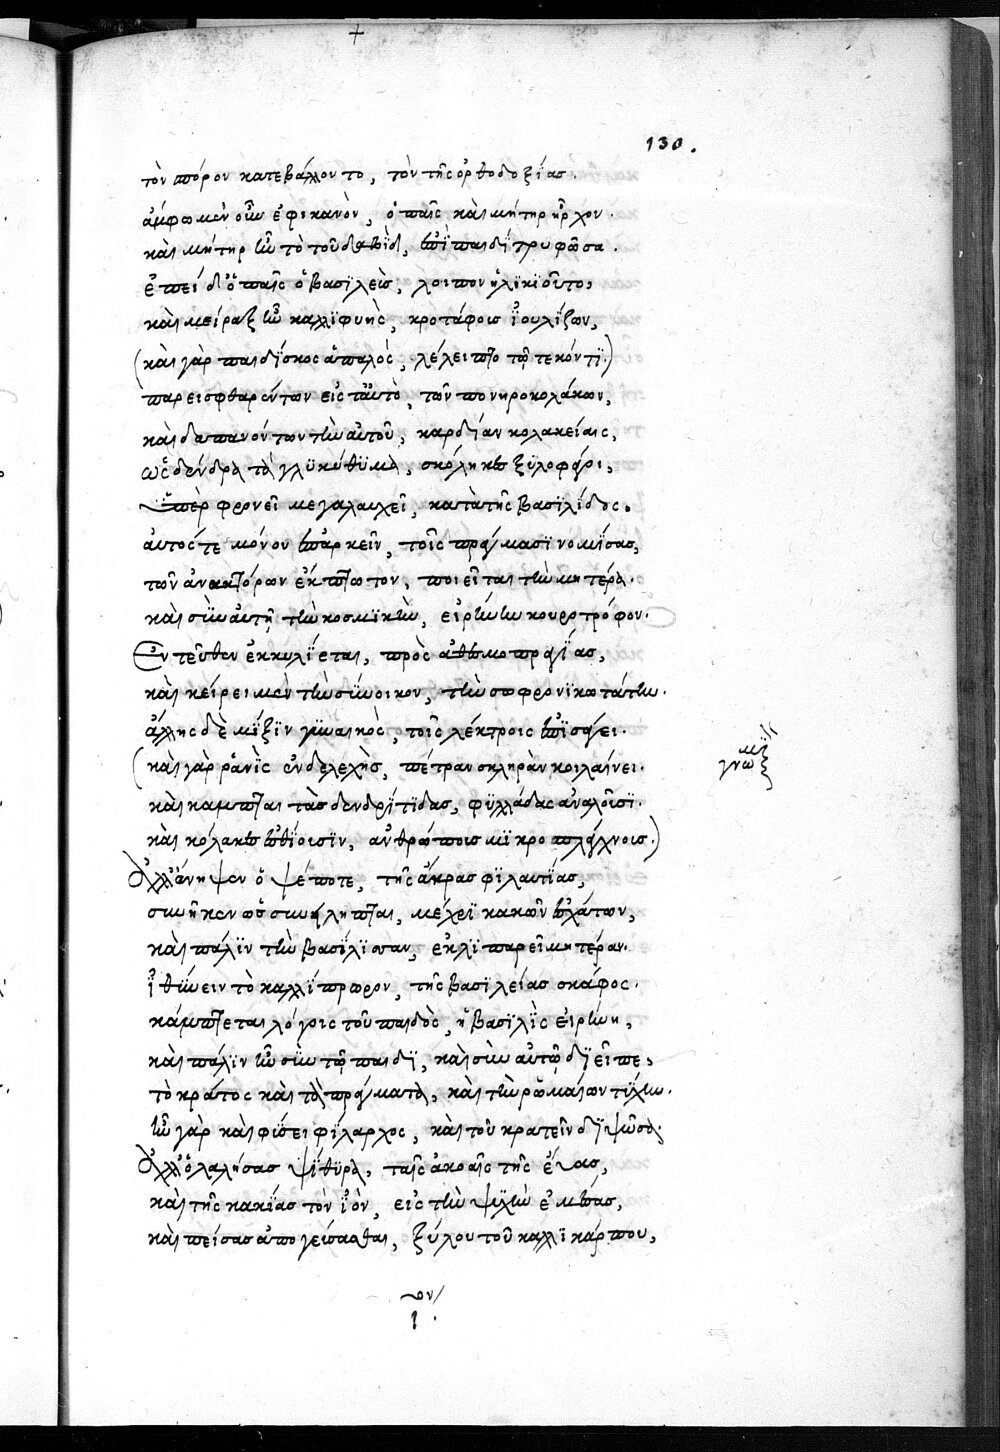 130.
τὸν πόρον κατεβάλλοντο, τὸν τῆς ὀρθοδοξίας.
ἄμφω μὲν οὖν ἐφικανὸν, ὁ παῖς καὶ μήτηρ ἦρχον.
καὶ μήτηρ ἦν τὸ τοῦ δαβὶδ, ἐπὶ παιδὶ τρυφῶσα.
ἐπεὶ δ' ὁ παῖς ὁ βασιλεὺς, λοιπὸν ἡλικιοῦτο,
καὶ μείραξ ἦν καλλιφυὴς, κροτάφοις ἰουλίζων,
(καὶ γὰρ παιδίσκος ἁπαλὸς, λέλειπτο τῷ τεκόντι.)
παρεισφθαρέντων εἰς ταὐτὸ, τῶν πονηροκολάκων,
καὶ δαπανόντων τὴν αὐτοῦ, καρδίαν κολακείαις,
ὡς δένδρα τὰ γλυκύθυμα, σκώληκες ξυλοφάγοι,
ὑπὲρ φρονεῖ μεγαλαυχεῖ, κατὰ τῆς βασιλίδος.
αὐτός τε μόνον ἐπαρκεῖν, τοῖς πράγμασι νομίσας,
τῶν ἀνακτόρων ἔκπτωτον, ποιεῖται τὴν μητέρα.
καὶ σὺν αὐτῇ τὴν κοσμικὴν, εἰρήνην κουροτρόφον.
Ἐντεῦθεν ἐκκυλίεται, πρὸς ἀθεσμοπραγίας,
καὶ κείρει μὲν τὴν σύνοικον, τὴν σωφρονικωτάτην.
ἄλλης δὲ μίξιν γυναικὸς, τοῖς λέκτροις ἐπισάγει.
(καὶ γὰρ ῥανὶς ἐνδελεχὴς, πέτραν σκληρὰν κοιλαίνει.
γνωμι
καὶ κάμπται τὰς δενδρίτιδας, φυλλάδας ἀναλοῦσι.
καὶ κόλακες ἐσθίουσιν, ἀνθρώποις μικροσπλάγχνοις.)
Ἀλλ' ἀνηψεν ὀψέποτε, τῆς ἄκρας φιλαυτίας,
συνῆκεν ὡς συνείληπται, μέχρι κακῶν ἐσχάτων,
καὶ πάλιν τὴν βασίλισσαν, ἐκλιπαρεῖ μητέραν.
ἰθύνειν τὸ καλλίπρωρον, τῆς βασιλείας σκάφος.
κάμπτεται λόγοις τοῦ παιδὸς, ἡ βασιλὶς εἰρήνη,
καὶ πάλιν ἦν σὺν τῷ παιδὶ, καὶ σὺν αὐτῷ διεῖπε,
τὸ κράτος καὶ τὰ πράγματα, καὶ τὴν ῥωμαίων τύχην.
ἦν γὰρ καὶ φύσει φίλαρχος, καὶ τοῦ κρατεῖν διψῶσα.
Ἀλλ' ὁ λαλήσας ψίθυρα, ταῖς ἀκοαῖς τῆς εὔας,
καὶ τῆς κακίας τὸν ἰὸν, εἰς τὴν ψυχὴν ἐμπτύσας,
καὶ πείσας ἀπογεύσασθαι, ξύλου τοῦ καλλικάρπου,